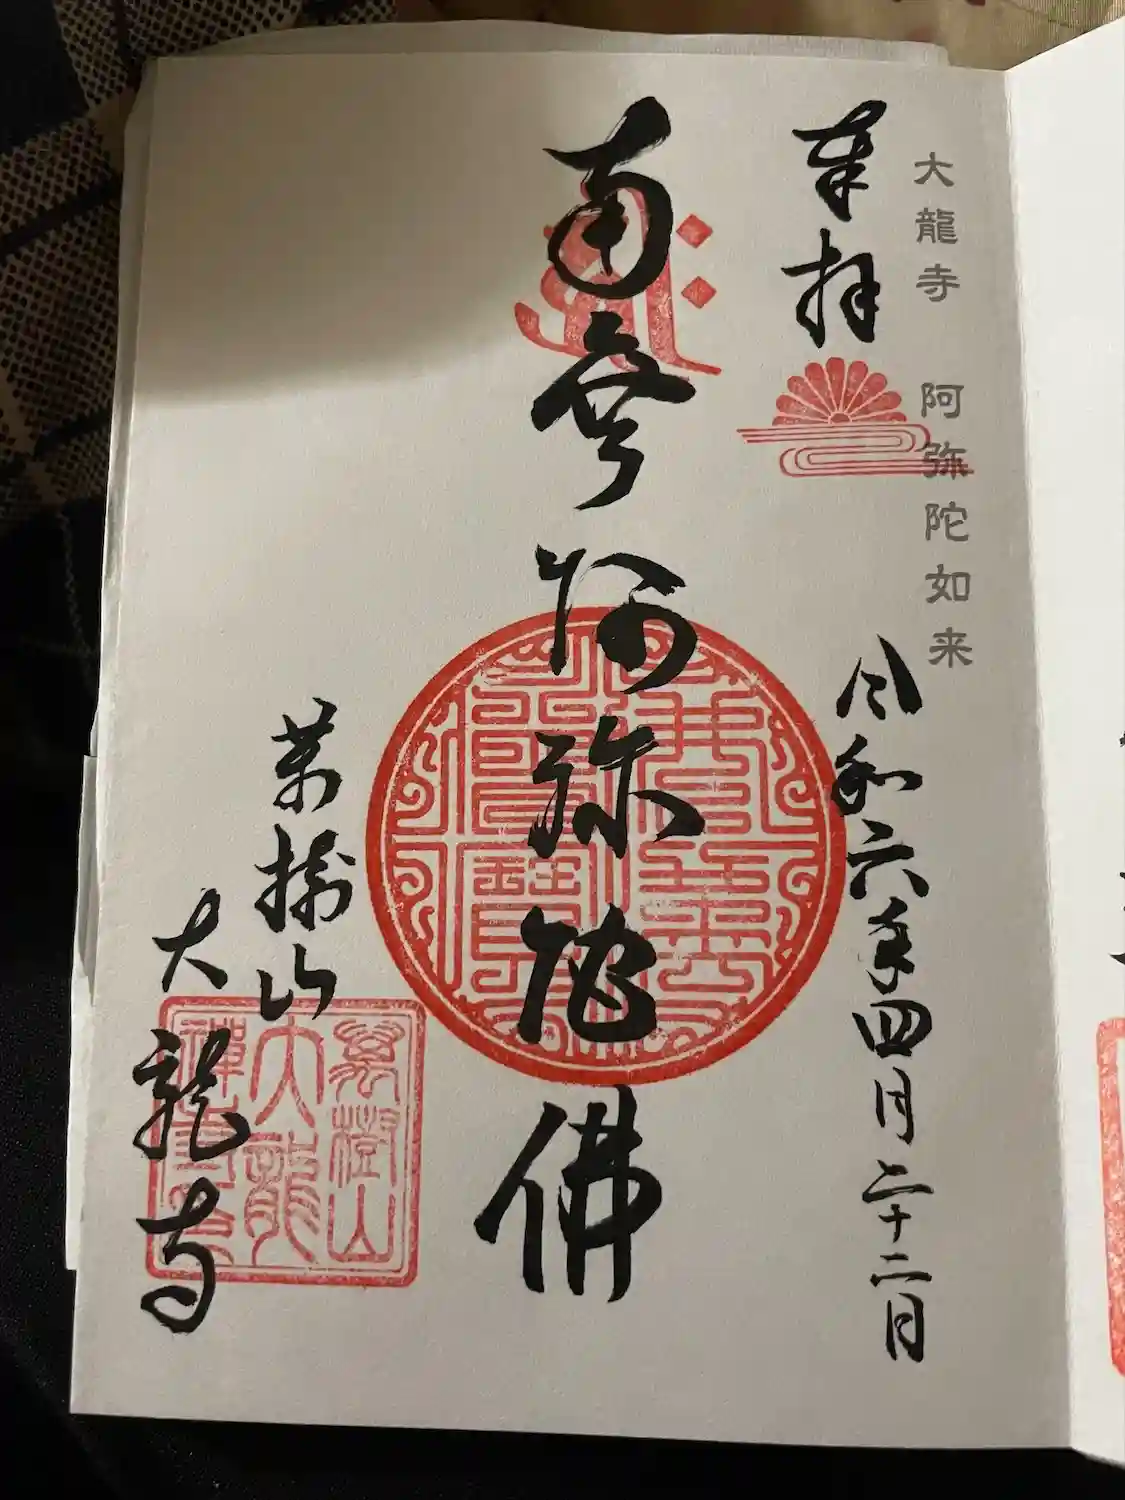 大龍寺 阿弥陀如来
奉拝
令和六年四月二十二日
南無阿弥陀佛
萬樹山
大龍寺
萬樹山
大龍